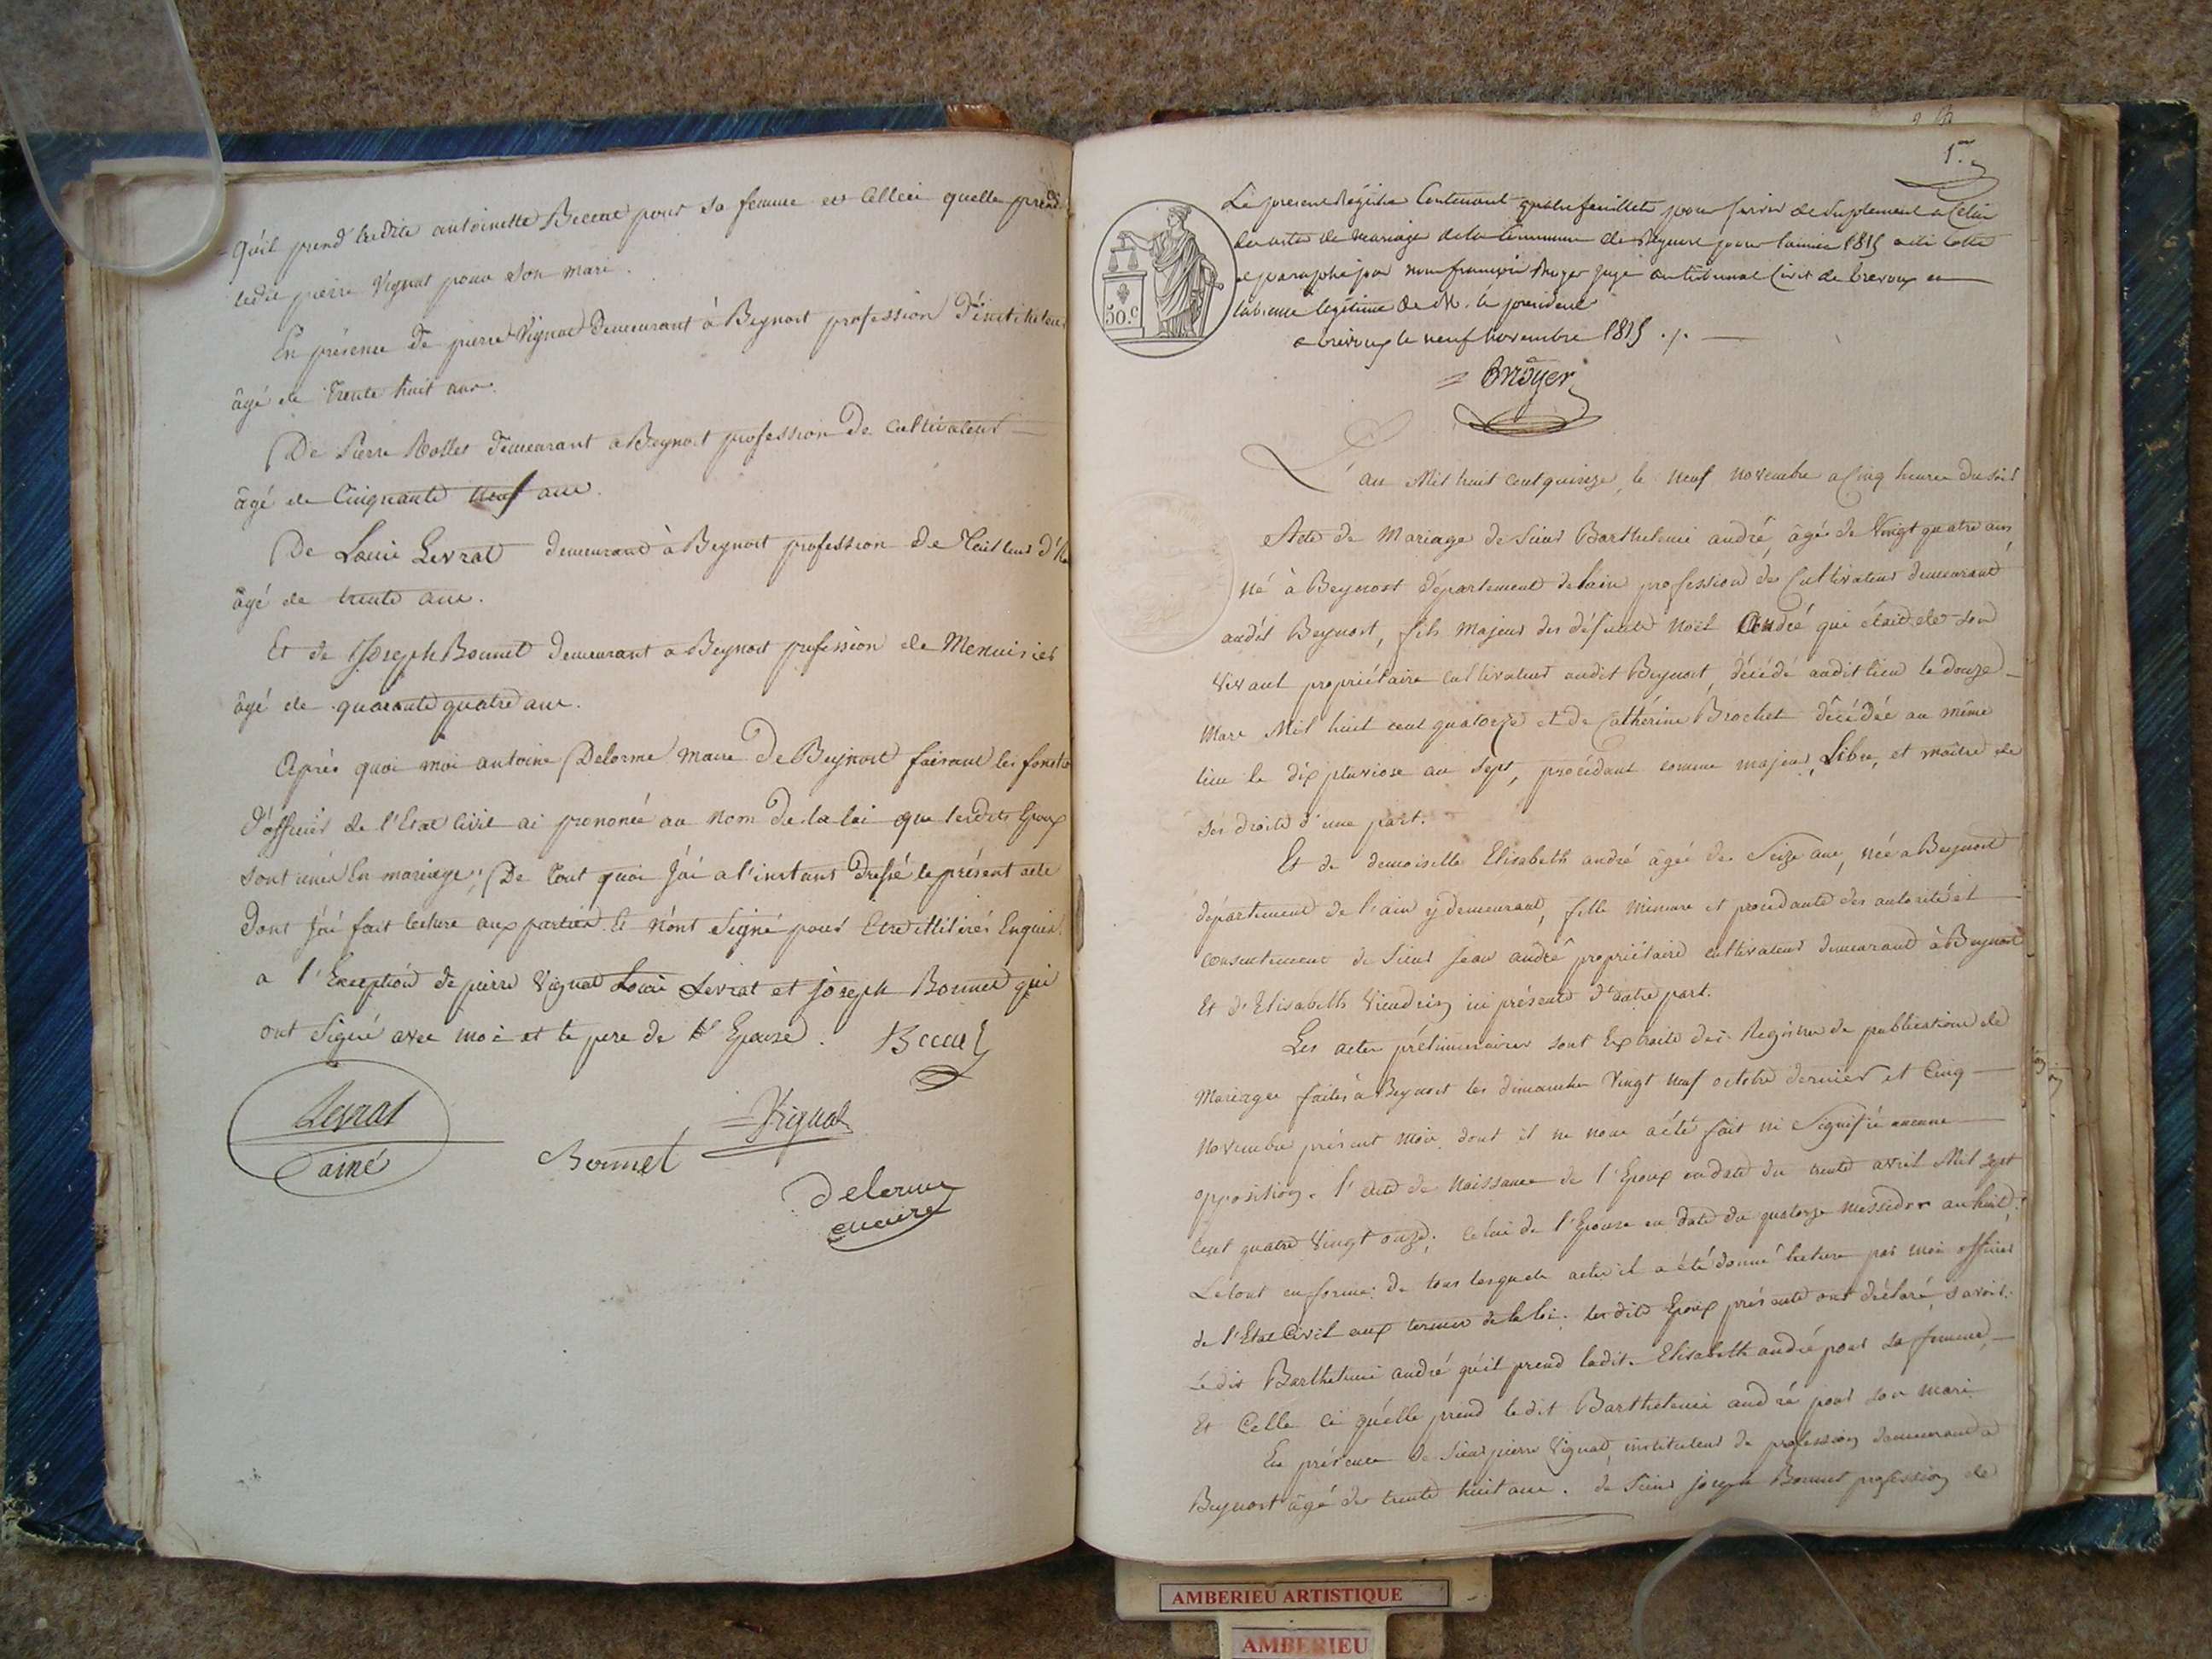 Qu'il prend ladite antoinette Beccat pour sa femme et Celleci quelle prend
ledit pierre Vignat pour son mari.
En présence de pierre Vignat Demeurant à Beynost profession d'instituteur
âgé de trente huit ans.
De Pierre Rollet demeurant a Beynost profession De Cultivateur
âgé de Cinquante neuf ans.
De Louis Levrat demeurant à Beynost profession De Tailleur
âgé de trente ans.
Et de Joseph Bonnet demeurant a Beynost profession de Menuisier
âgé de quarante quatre ans.
Après quoi moi antoine Delorme maire De Beynost faisant les
d'officier de l'Etat Civil ai prononcé au Nom De la loi que lesdits Epoux
Sont unis En mariage; De tout quoi J'ai a l'instant Dressé le présent acte
Dont J'ai fait lecture aux parties. Et n'ont Signé pour Etre illitirés Enquis.
a l'Exception de pierre Vignat Louis Levrat et Joseph Bonnet qui
ont Signé avec moi et le pere de Epouse. Beccat
Levrat
ainé
Vignat
Bonnet
Delorme
maire
1er
Le present Registre Contenant quatre feuillets pour servir de Suplement a Celui
des actes de mariage de la Commune de Beynost pour l'année 1815 a été cotté
et paraphé par nous françois Juge au tribunal Civil de trevoux en
l'absence légitime de Mr. le president
a trevoux le neuf novembre 1815 ./.
50.c
L'an Mil huit cent quinze, le neuf novembre a Cinq heures du Soir
Acte de Mariage de Sieur Barthelemi andré, âgé de Vingt quatre ans,
né à Beynost département de lain profession de Cultivateur demeurant
audit Beynost, fils majeur des défunts Noël André qui était de son
vivant propriétaire cultivateur audit Beynost, décédé audit lieu le douze
Mars Mil huit cent quatorze et de Cathérine Brochet décédée au même
lieu le dix pluviose an sept, procédant comme majeur, Libre, et maître de
ses droits d'une part.
Et de demoiselle Elisabeth andré âgée de Seize ans, née a Beynost
département de l'ain y demeurant, fille mineure et procédante des autorité et
consentement de Sieur Jean andré propriétaire cultivateur demeurant à Beynost
Et d'Elisabeth ici présents d'autre part.
Les actes préliminaires sont Extraits des Registres de publications de
Mariages faites à Beynost les dimanches Vingt neuf octobre dernier et Cinq
Novembre présent mois dont il ne nous a été fait ni Signifié aucune
opposition. l'acte de Naissance de l'Epoux en date du trente avril Mil sept
Cent quatre Vingt onze; celui de l'Epouse en date du quatorze messidor an huit.
Le tout en forme: De tous lesquels actes il a été donné lecture par moi officier
de l'Etat Civil aux termes de la loi. les dits Epoux présents ont déclaré, savoir:
Ledit Barthelemi andré qu'il prend ladite Elisabeth andré pour sa femme,
Et Celle ci qu'elle prend ledit Barthelemi andré pour son mari
En présence de Sieur pierre Vignat, instituteur de profession demeurant a
Beynost âgé de trente huit ans. de Sieur Joseph Bonnet profession de
AMBERIEU ARTISTIQUE
AMBERIEU